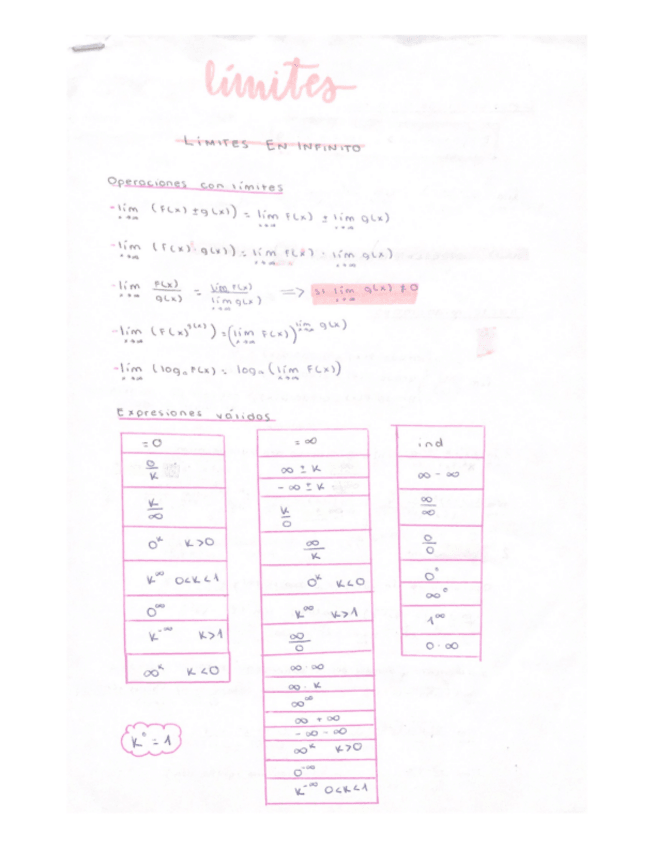 límites
LÍMITES EN INFINITO
Operaciones con límites
-lim x→∞ (F(x) ± g(x)) = lim x→∞ F(x) ± lim x→∞ g(x)
-lim x→∞ (F(x) · g(x)) = lim x→∞ F(x) · lim x→∞ g(x)
-lim x→∞ F(x)/g(x) = lim F(x)/lim g(x) x→∞ => si lim x→∞ g(x) ≠ 0
-lim x→∞ (F(x)^g(x)) = (lim x→∞ F(x))^lim x→∞ g(x)
-lim x→∞ (logₐ F(x) = logₐ (lim x→∞ F(x))
Expresiones válidas
= 0
0/K
K/∞
0^K K>0
K^∞ 0<K<1
0^∞
K^-∞ K>1
∞^K K<0
K° = 1
= ∞
∞ ± K
-∞ ± K
K/0
∞/K
0^K K<0
K^∞ K>1
∞/0
∞ · ∞
∞ · K
∞^∞
∞ + ∞
-∞ -∞
∞^K K>0
0^-∞
K^-∞ 0<K<1
ind
∞ - ∞
∞/∞
0/0
0°
∞°
1^∞
0 · ∞